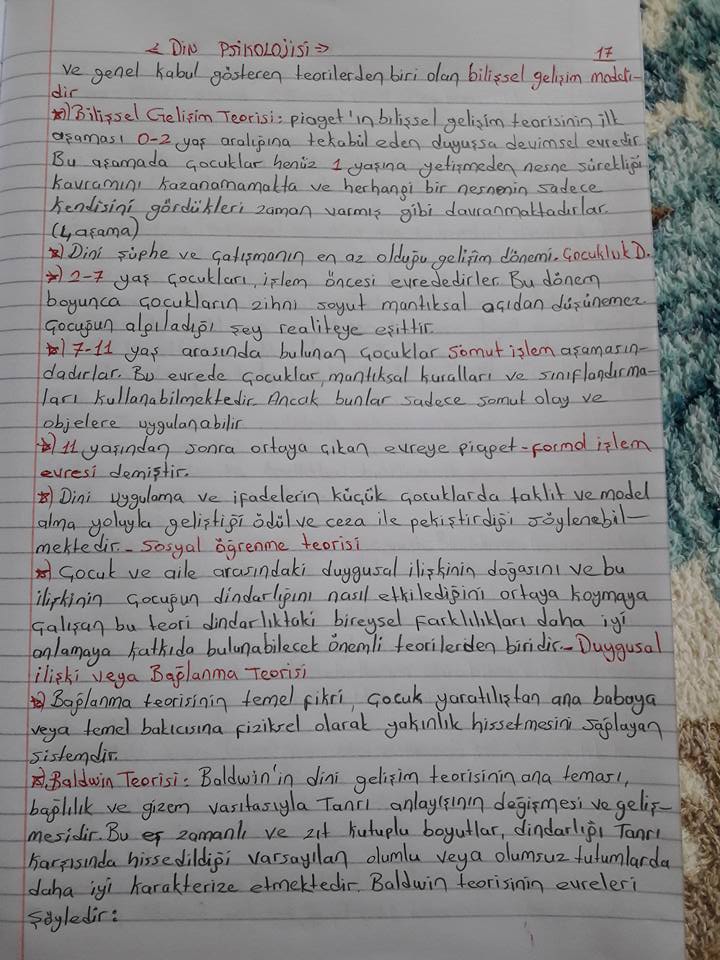 < Din Psikolojisi => 17
ve genel kabul gösteren teorilerden biri olan bilişsel gelişim modeli-
dir
*) Bilişsel Gelişim Teorisi: piaget'ın bilişsel gelişim teorisinin ilk
aşaması 0-2 yaş aralığına tekabül eden duyuşsa devimsel evredir.
Bu aşamada çocuklar henüz 1 yaşına yetişmeden nesne sürekliği
kavramını kazanamamakta ve herhangi bir nesnenin sadece
kendisini gördükleri zaman varmış gibi davranmaktadırlar.
(4 aşama)
*) Dini şüphe ve çatışmanın en az olduğu gelişim dönemi. Çocukluk D.
*) 2-7 yaş çocukları, işlem öncesi evrededirler. Bu dönem
boyunca çocukların zihni soyut mantıksal açıdan düşünemez.
Çocuğun algıladığı şey realiteye eşittir.
*) 7-11 yaş arasında bulunan çocuklar somut işlem aşamasın-
dadırlar. Bu evrede çocuklar, mantıksal kuralları ve sınıflandırma-
ları kullanabilmektedir. Ancak bunlar sadece somut olay ve
objelere uygulanabilir
*) 11 yaşından sonra ortaya çıkan evreye piaget-formal işlem
evresi demiştir.
*) Dini uygulama ve ifadelerin küçük çocuklarda taklit ve model
alma yoluyla geliştiği ödül ve ceza ile pekiştirdiği söylenebil-
mektedir.- Sosyal öğrenme teorisi
*) Çocuk ve aile arasındaki duygusal ilişkinin doğasını ve bu
ilişkinin çocuğun dindarlığını nasıl etkilediğini ortaya koymaya
çalışan bu teori dindarlıktaki bireysel farklılıkları daha iyi
anlamaya katkıda bulunabilecek önemli teorilerden biridir.- Duygusal
ilişki veya Bağlanma Teorisi
*) Bağlanma teorisinin temel fikri, çocuk yaratılıştan ana babaya
veya temel bakıcısına fiziksel olarak yakınlık hissetmesini sağlayan
sistemdir.
*) Baldwin Teorisi: Baldwin'in dini gelişim teorisinin ana teması,
bağlılık ve gizem vasıtasıyla Tanrı anlayışının değişmesi ve geliş-
mesidir. Bu eş zamanlı ve zıt kutuplu boyutlar, dindarlığı Tanrı
karşısında hissedildiği varsayılan olumlu veya olumsuz tutumlarda
daha iyi karakterize etmektedir. Baldwin teorisinin evreleri
şöyledir: